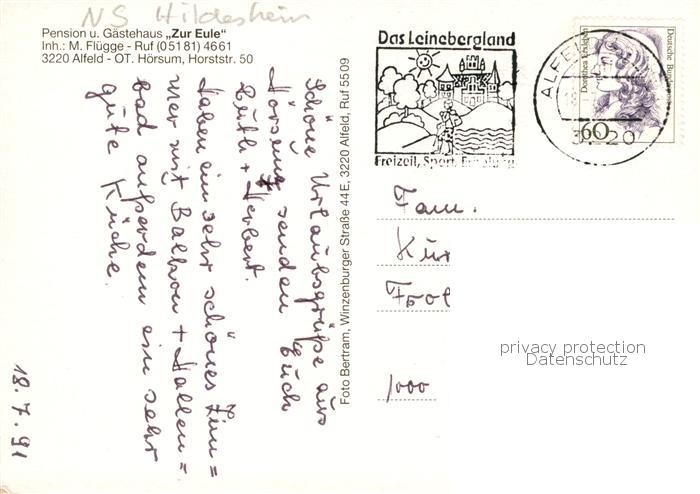 NS Hildesheim
Pension u. Gästehaus „Zur Eule"
Inh.: M. Flügge - Ruf (05181) 4661
3220 Alfeld - OT. Hörsum, Horststr. 50
Schöne Urlaubsgrüße aus
Hörsum senden Euch
Ruth + Herbert.
Haben ein sehr schönes Zim=
mer mit Balkon + Hallen=
bad außerdem ein sehr
gute Küche.
18.7.91
Foto Bertram, Winzenburger Straße 44E, 3220 Alfeld, Ruf 5509
Das Leinebergland
Freizeit, Sport, Erholung
ALFELD
3220
Deutsche Bundespost
60
Fam.
Kur
1000
privacy protection
Datenschutz